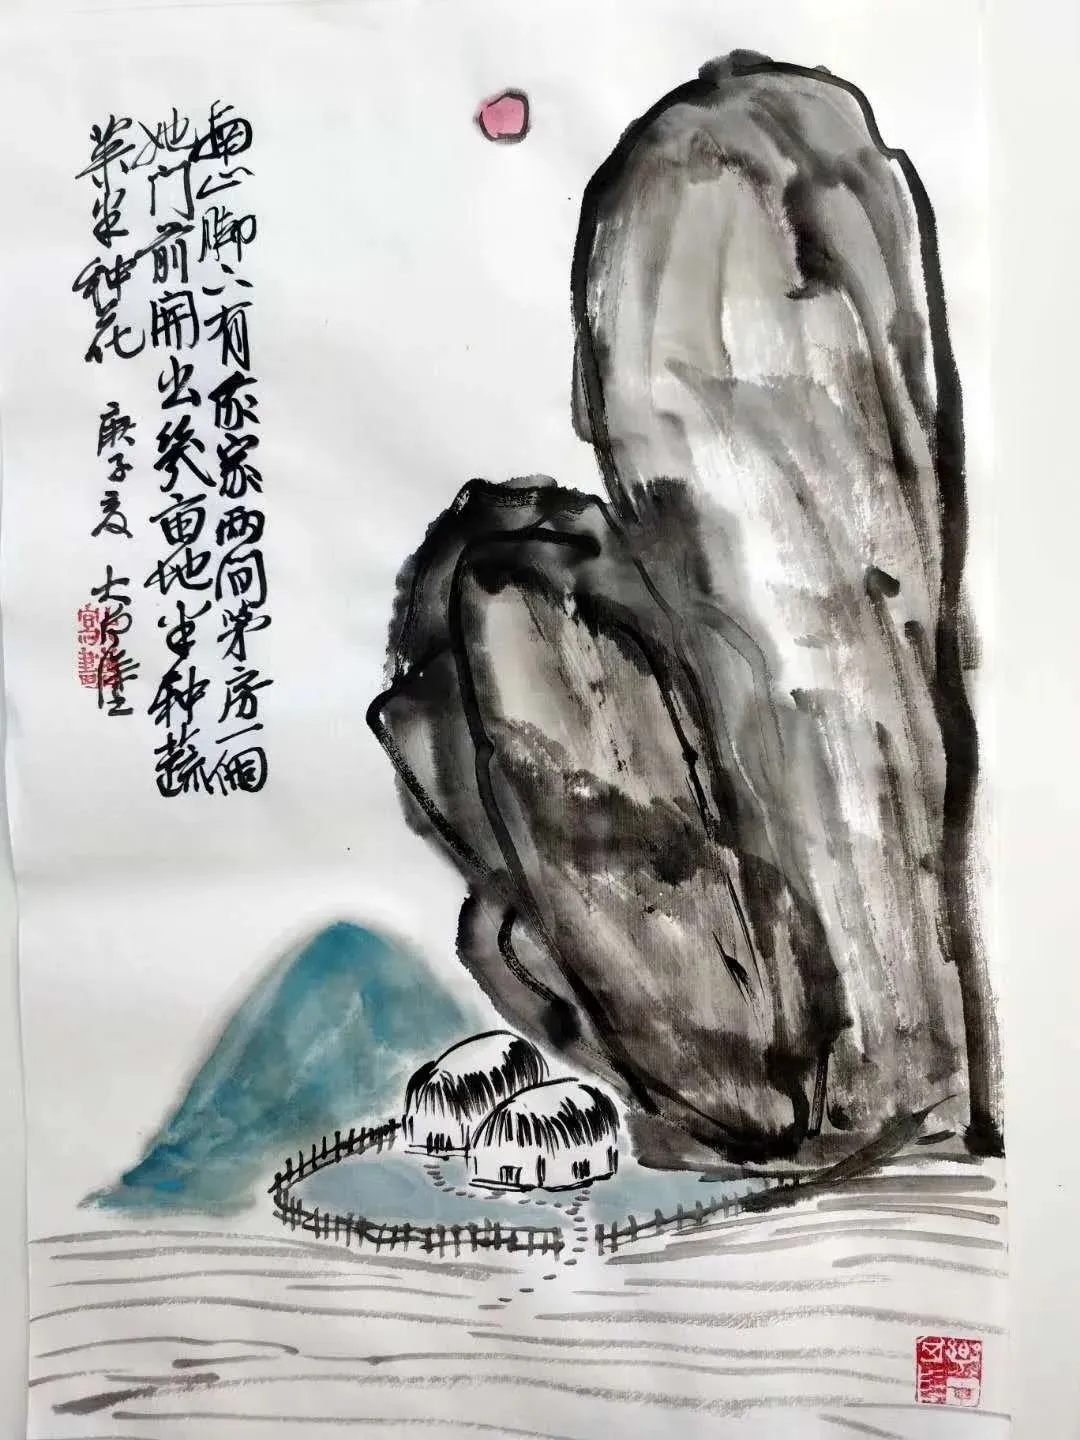 南山脚下有我家两间茅房一個
她门前開出幾亩地半种蔬
菜半种花 庚子夏